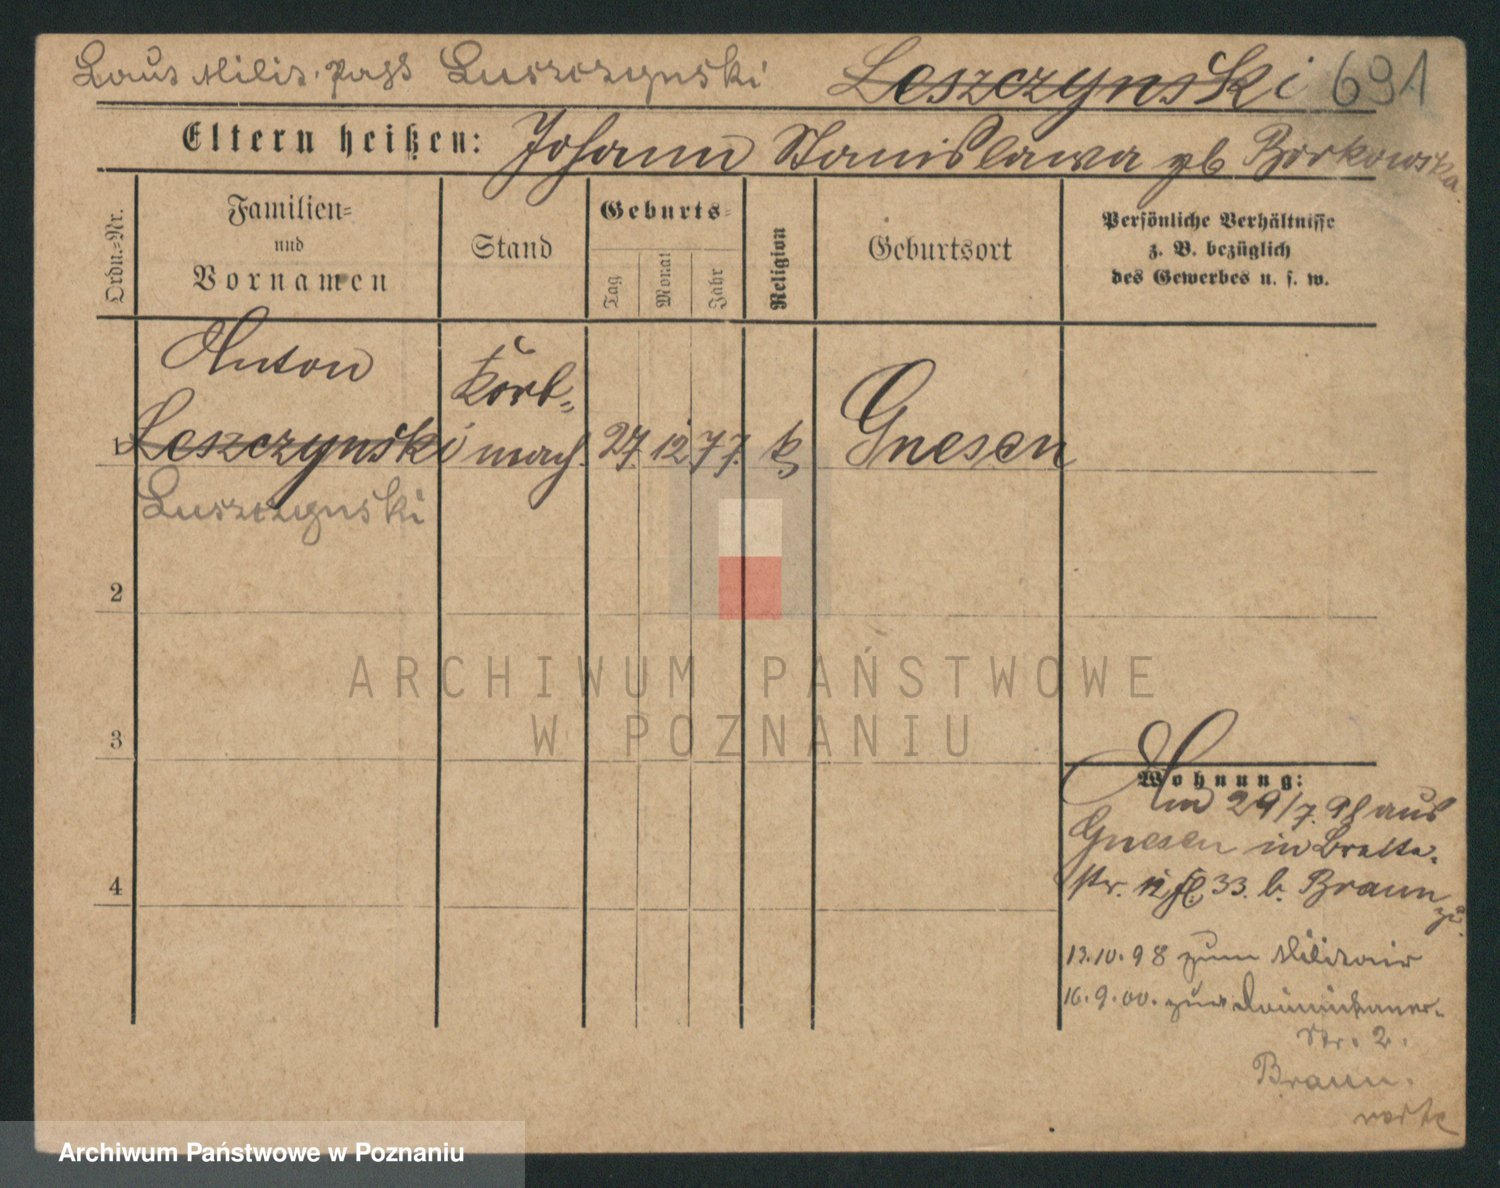 Laut Milit. Pass Luszczynski Leszczynski 691
Eltern heißen: Johann Stanislawa gb Borkowska
Ordn.=Nr.
Familien=
und
Vornamen
Stand
Geburts=
Tag
Monat
Jahr
Religion
Geburtsort
Persönliche Verhältnisse
z. B. bezüglich
des Gewerbes u. s. w.
Anton
Korb=
1 Leszczynski mach. 27. 12. 77. k Gnesen
Luszczynski
2
ARCHIWUM PAŃSTWOWE
W POZNANIU
3
Wohnung:
Am 29/7. 98 aus
Gnesen in Breite.
str. 12 33. b. Braun
zu.
13.10.98 zum Militair
16.9.00. zur Dominikaner-
Str. 2.
Braun.
Archiwum Państwowe w Poznaniu